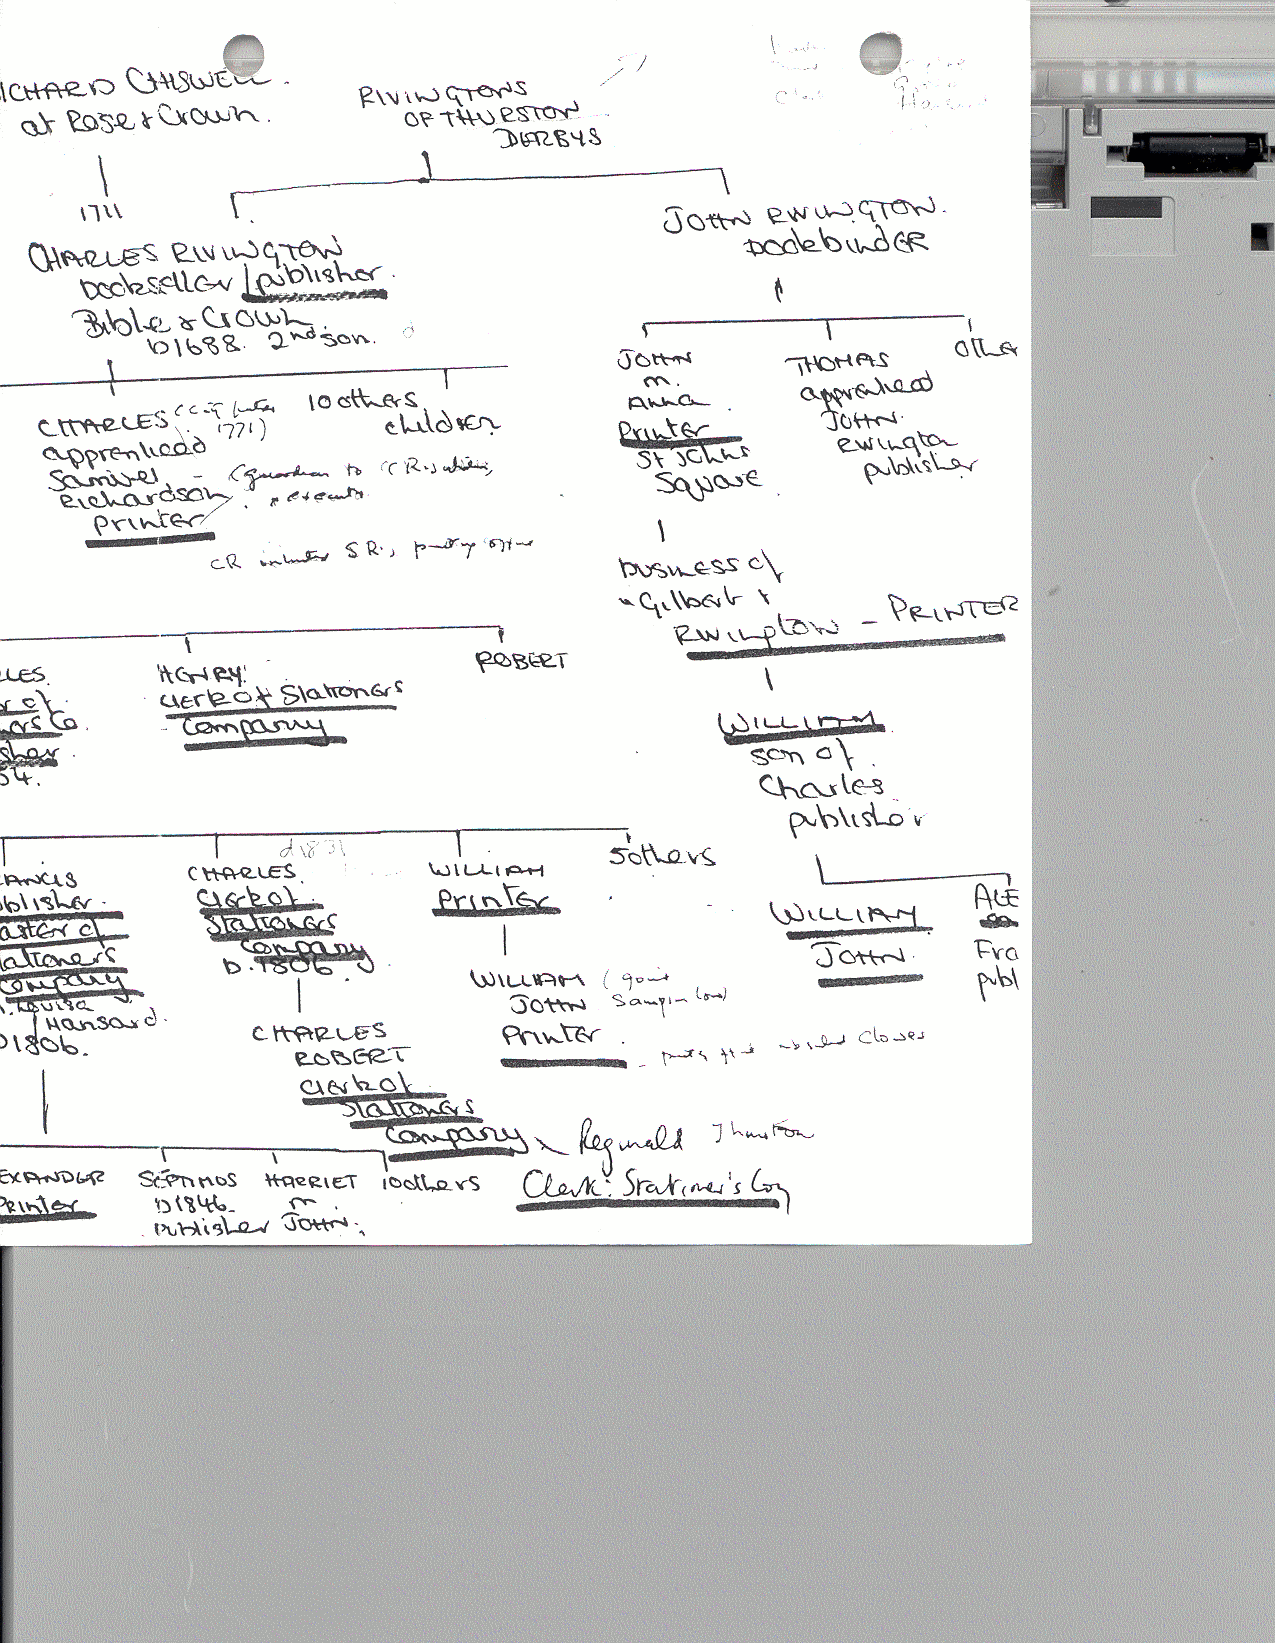 ICHARD CHISWELL.
at Rose & Crown.
RIVINGTONS
OF THURSTON
DERBYS
1711
CHARLES RIVINGTON
bookseller / publisher.
Bible & Crown
b1688. 2nd son.
JOHN RIVINGTON.
bookbinder
CHARLES
1771)
apprenticed
Samuel
Richardson
printer
(guardian to CR's
10 others
children
CR SR's
JOHN
m.
Anna
Printer
St Johns
Square
THOMAS
apprenticed
JOHN.
Rivington
publisher
Other
business of
"Gilbert &
Rivington - PRINTER
LES.
of
ers Co.
sher.
54.
HENRY
clerk of Stationers
Company
ROBERT
WILLIAM
son of
Charles
publisher
ANCIS
blisher.
aster of
tationers
ompany
Louisa
Hansard.
b1806.
d1831
CHARLES.
clerk of
Stationers
Company
b.1806.
WILLIAM
Printer
5 others
WILLIAM
JOHN
Printer.
Closes
CHARLES
ROBERT
Clerk of
Stationers
Company
Reginald Thurston
Clerk: Stationer's Coy
WILLIAM
JOHN.
ALE
Fra
publ
EXANDER
PRINTER
SEPTIMUS
b1846
publisher
HARRIET
m.
JOHN.
10 others